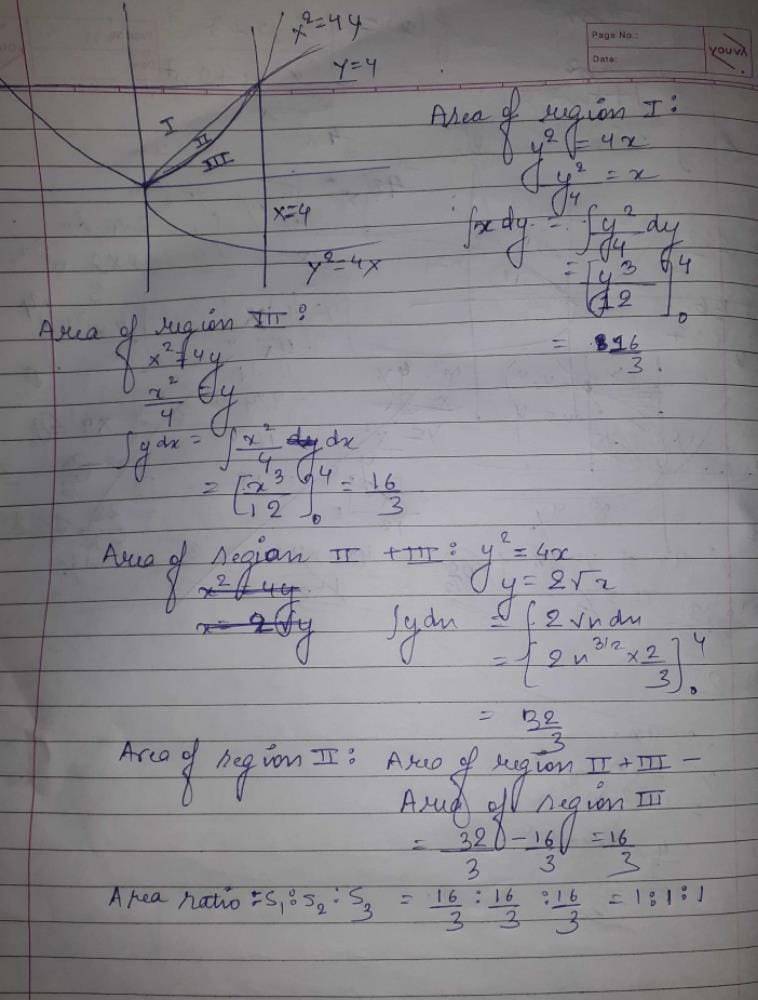 x²=4y
Page No.:
Date:
YOUVA
y=4
I
II
III
x=4
y²=4x
Area of region I:
y² = 4x
y²/4 = x
∫x dy = ∫y²/4 dy
= [y³/12]₀⁴
= 16/3
Area of region III:
x²=4y
x²/4 = y
∫y dx = ∫x²/4 dx
= [x³/12]₀⁴ = 16/3
Area of region II + III: y² = 4x
x² = 4y
y = 2√x
x = 2√y
∫ydx = ∫2√x dx
= [2x^3/2 × 2/3]₀⁴
= 32/3
Area of region II: Area of region II + III −
Area of region III
= 32/3 − 16/3 = 16/3
Area ratio : S₁ : S₂ : S₃ = 16/3 : 16/3 : 16/3 = 1:1:1